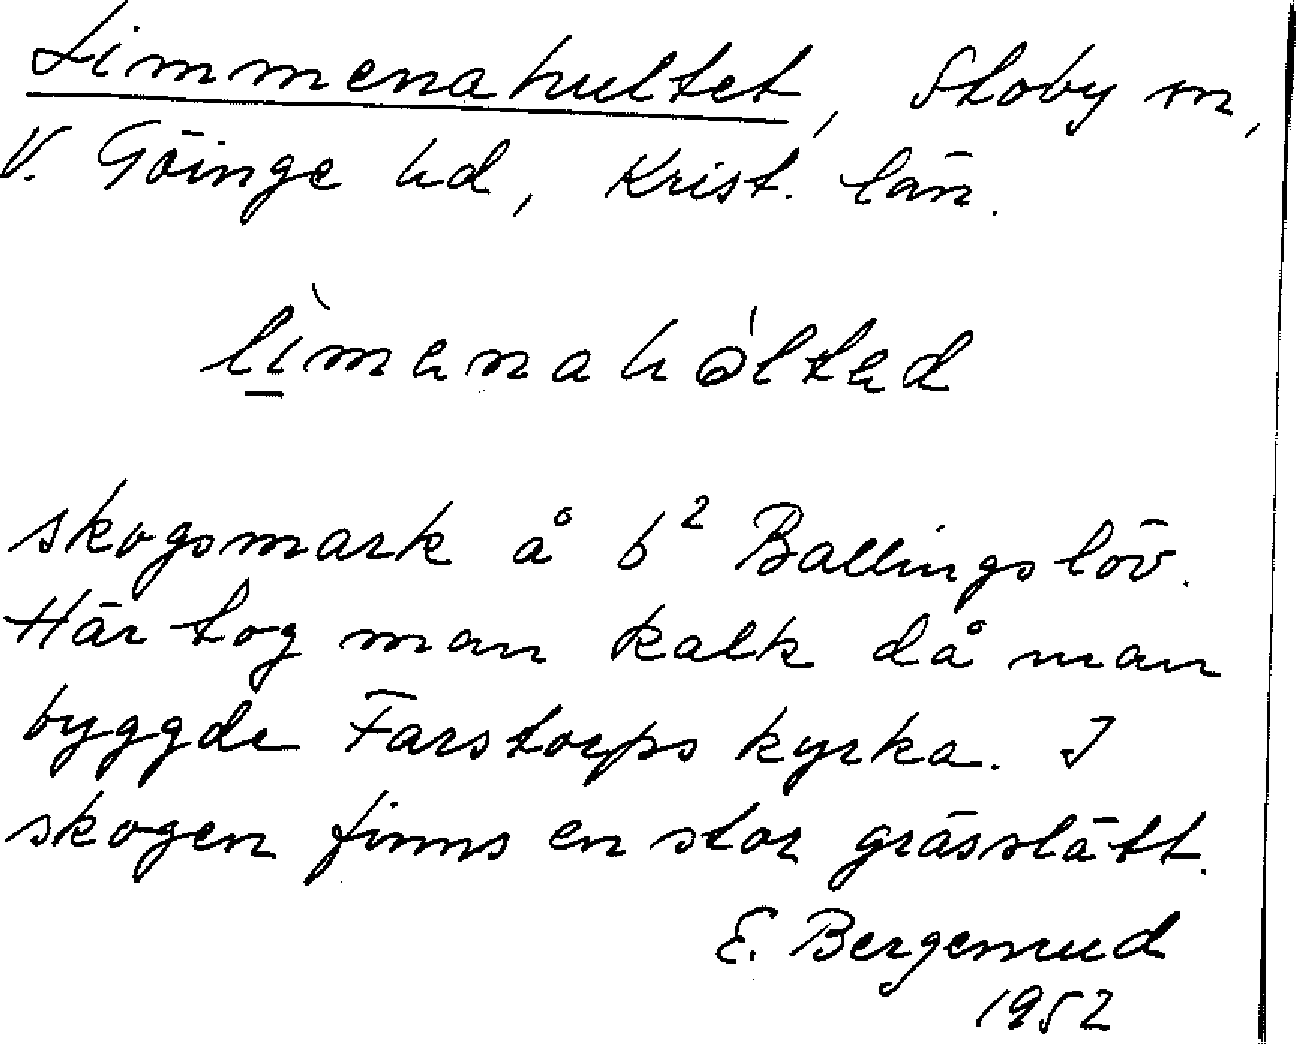 Limmenahultet, Stoby sn,
V. Göinge hd, Krist. län.
lìmenahóltad
skogsmark å 6² Ballingslöv.
Här tog man kalk då man
byggde Farstorps kyrka. I
skogen finns en stor grässlätt.
E. Bergemrud
1952